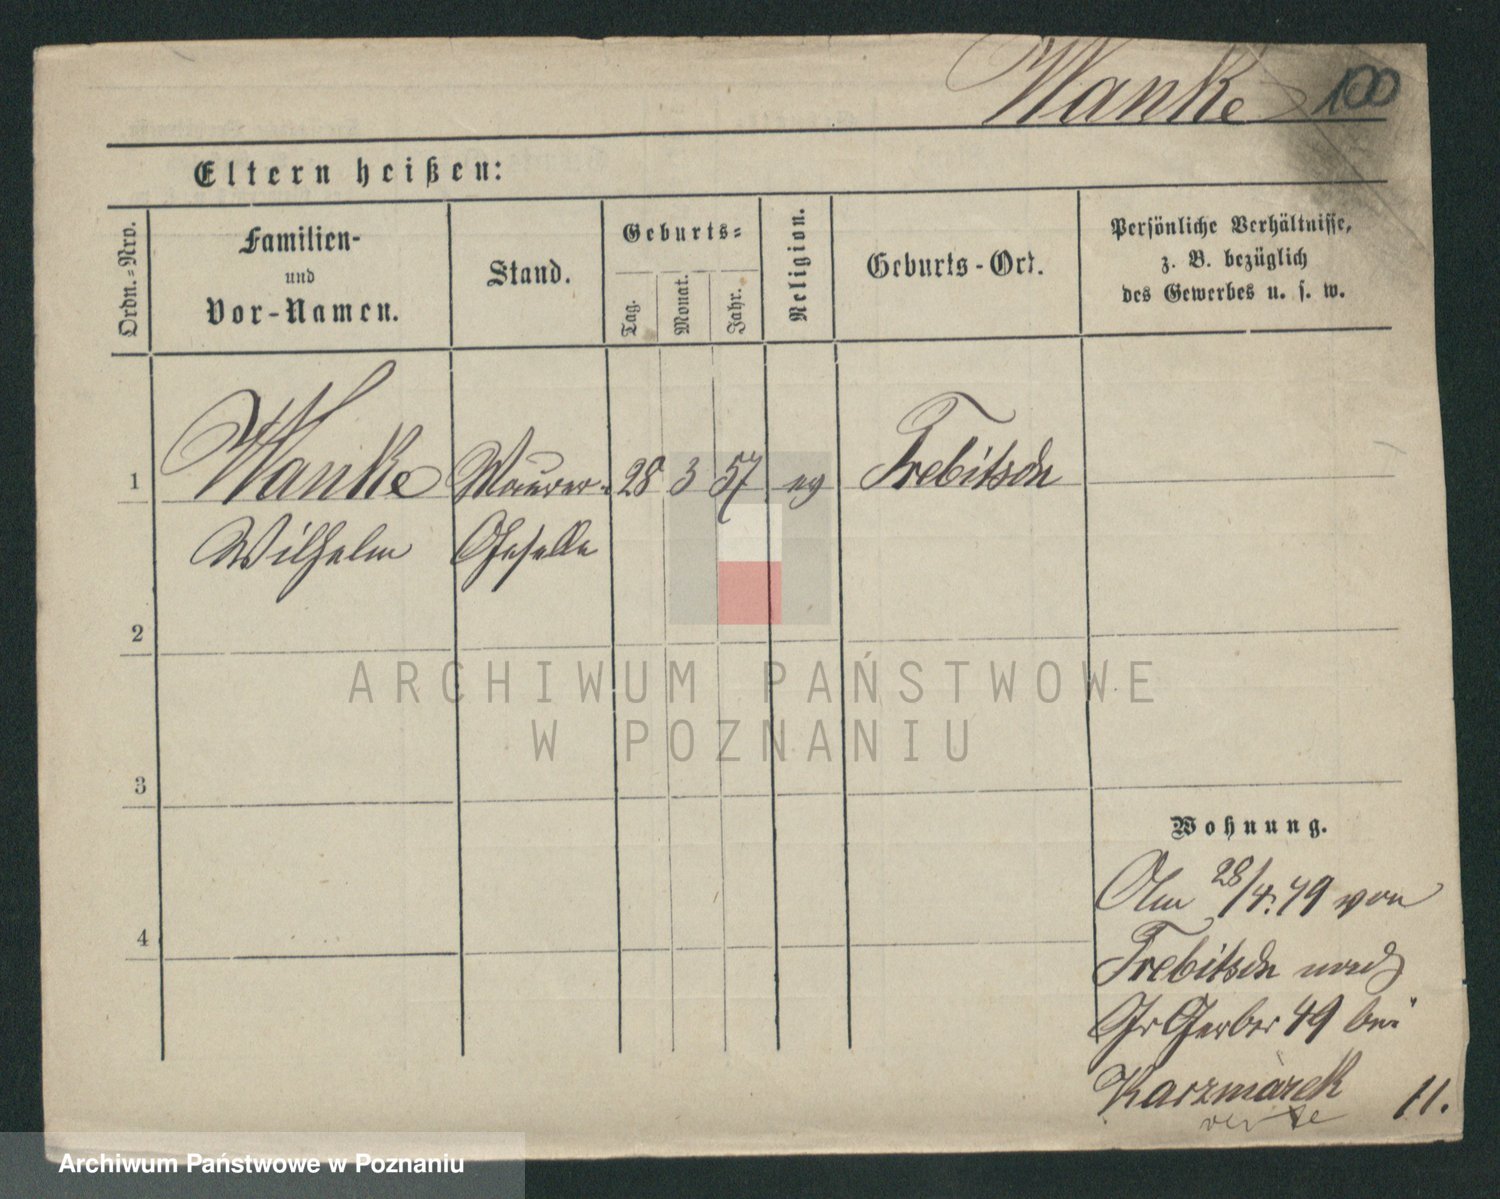 Wanke 100
Eltern heißen:
Ordn.-Nro.
Familien-
und
Vor-Namen.
Stand.
Geburts-
Tag.
Monat.
Jahr.
Religion.
Geburts-Ort.
Persönliche Verhältnisse,
z. B. bezüglich
des Gewerbes u. s. w.
1 Wanke Maurer- 28 3 57 ev Trebitsch
Wilhelm Geselle
2
3
4
Wohnung.
Am 28/4.79 von
Trebitsch nach
Gr Gerber 49 bei
Karzmarek 11.
ARCHIWUM PAŃSTWOWE
W POZNANIU
Archiwum Państwowe w Poznaniu